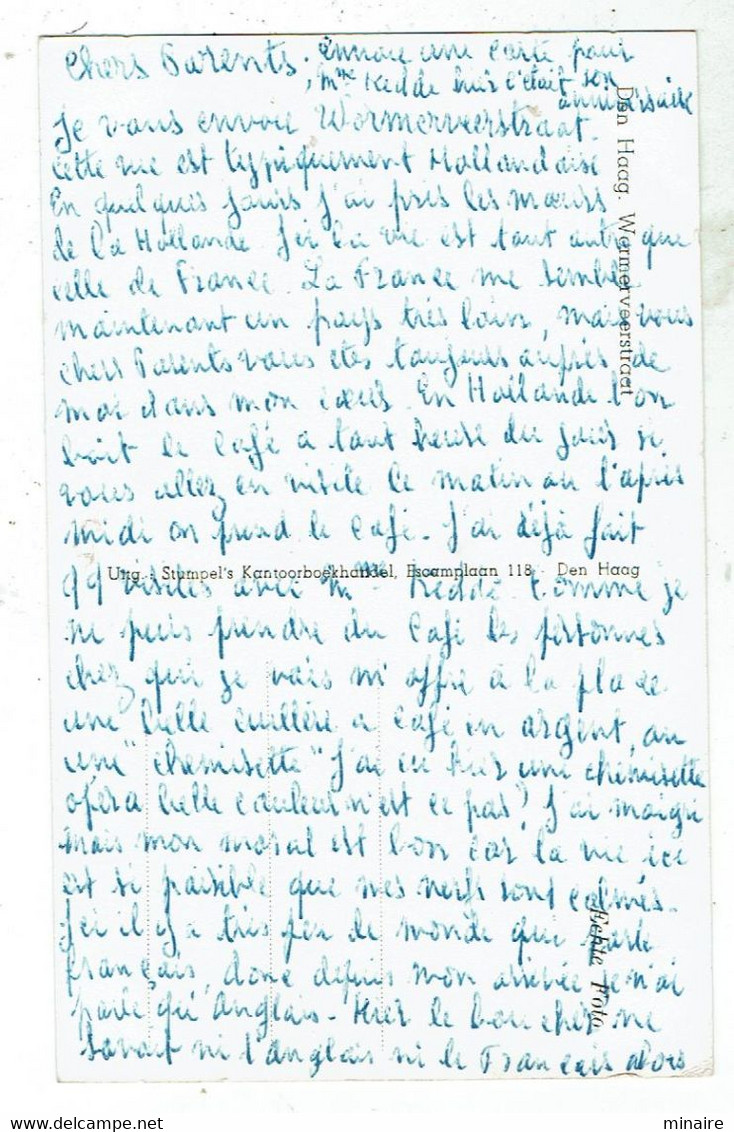 Chers Parents. Envoie une carte pour
Mme Kedde hier c'était son
anniversaire
Je vous envoie Wormerveerstraat.
cette vue est typiquement Hollandaise
En quelques jours j'ai pris les mœurs
de la Hollande. Ici la vie est tout autre que
celle de France. La France me semble
maintenant un pays très loin, mais vous
chers Parents vous êtes toujours auprès de
moi dans mon cœur. En Hollande l'on
boit le café a tout heure du jour si
vous allez en visite le matin ou l'après
midi on prend le café. J'ai déjà fait
Uitg.: Stumpel's Kantoorboekhandel, Escamplaan 118, Den Haag
99 visites avec Mme Kedde. Comme je
ne puis prendre du café les personnes
chez qui je vais m'offre à la place
une belle cuillère a café en argent, ou
une "chemisette" J'ai eu hier une chemisette
opéra belle couleur n'est ce pas? J'ai maigri
mais mon moral est bon car la vie ici
est si paisible que mes nerfs sont calmés.
Ici il y a très peu de monde qui parle
français, donc depuis mon arrivée je n'ai
parlé qu'Anglais - Hier le boucher ne
savait ni l'anglais ni le Français alors
Den Haag. Wormerveerstraat
Echte Foto
minaire